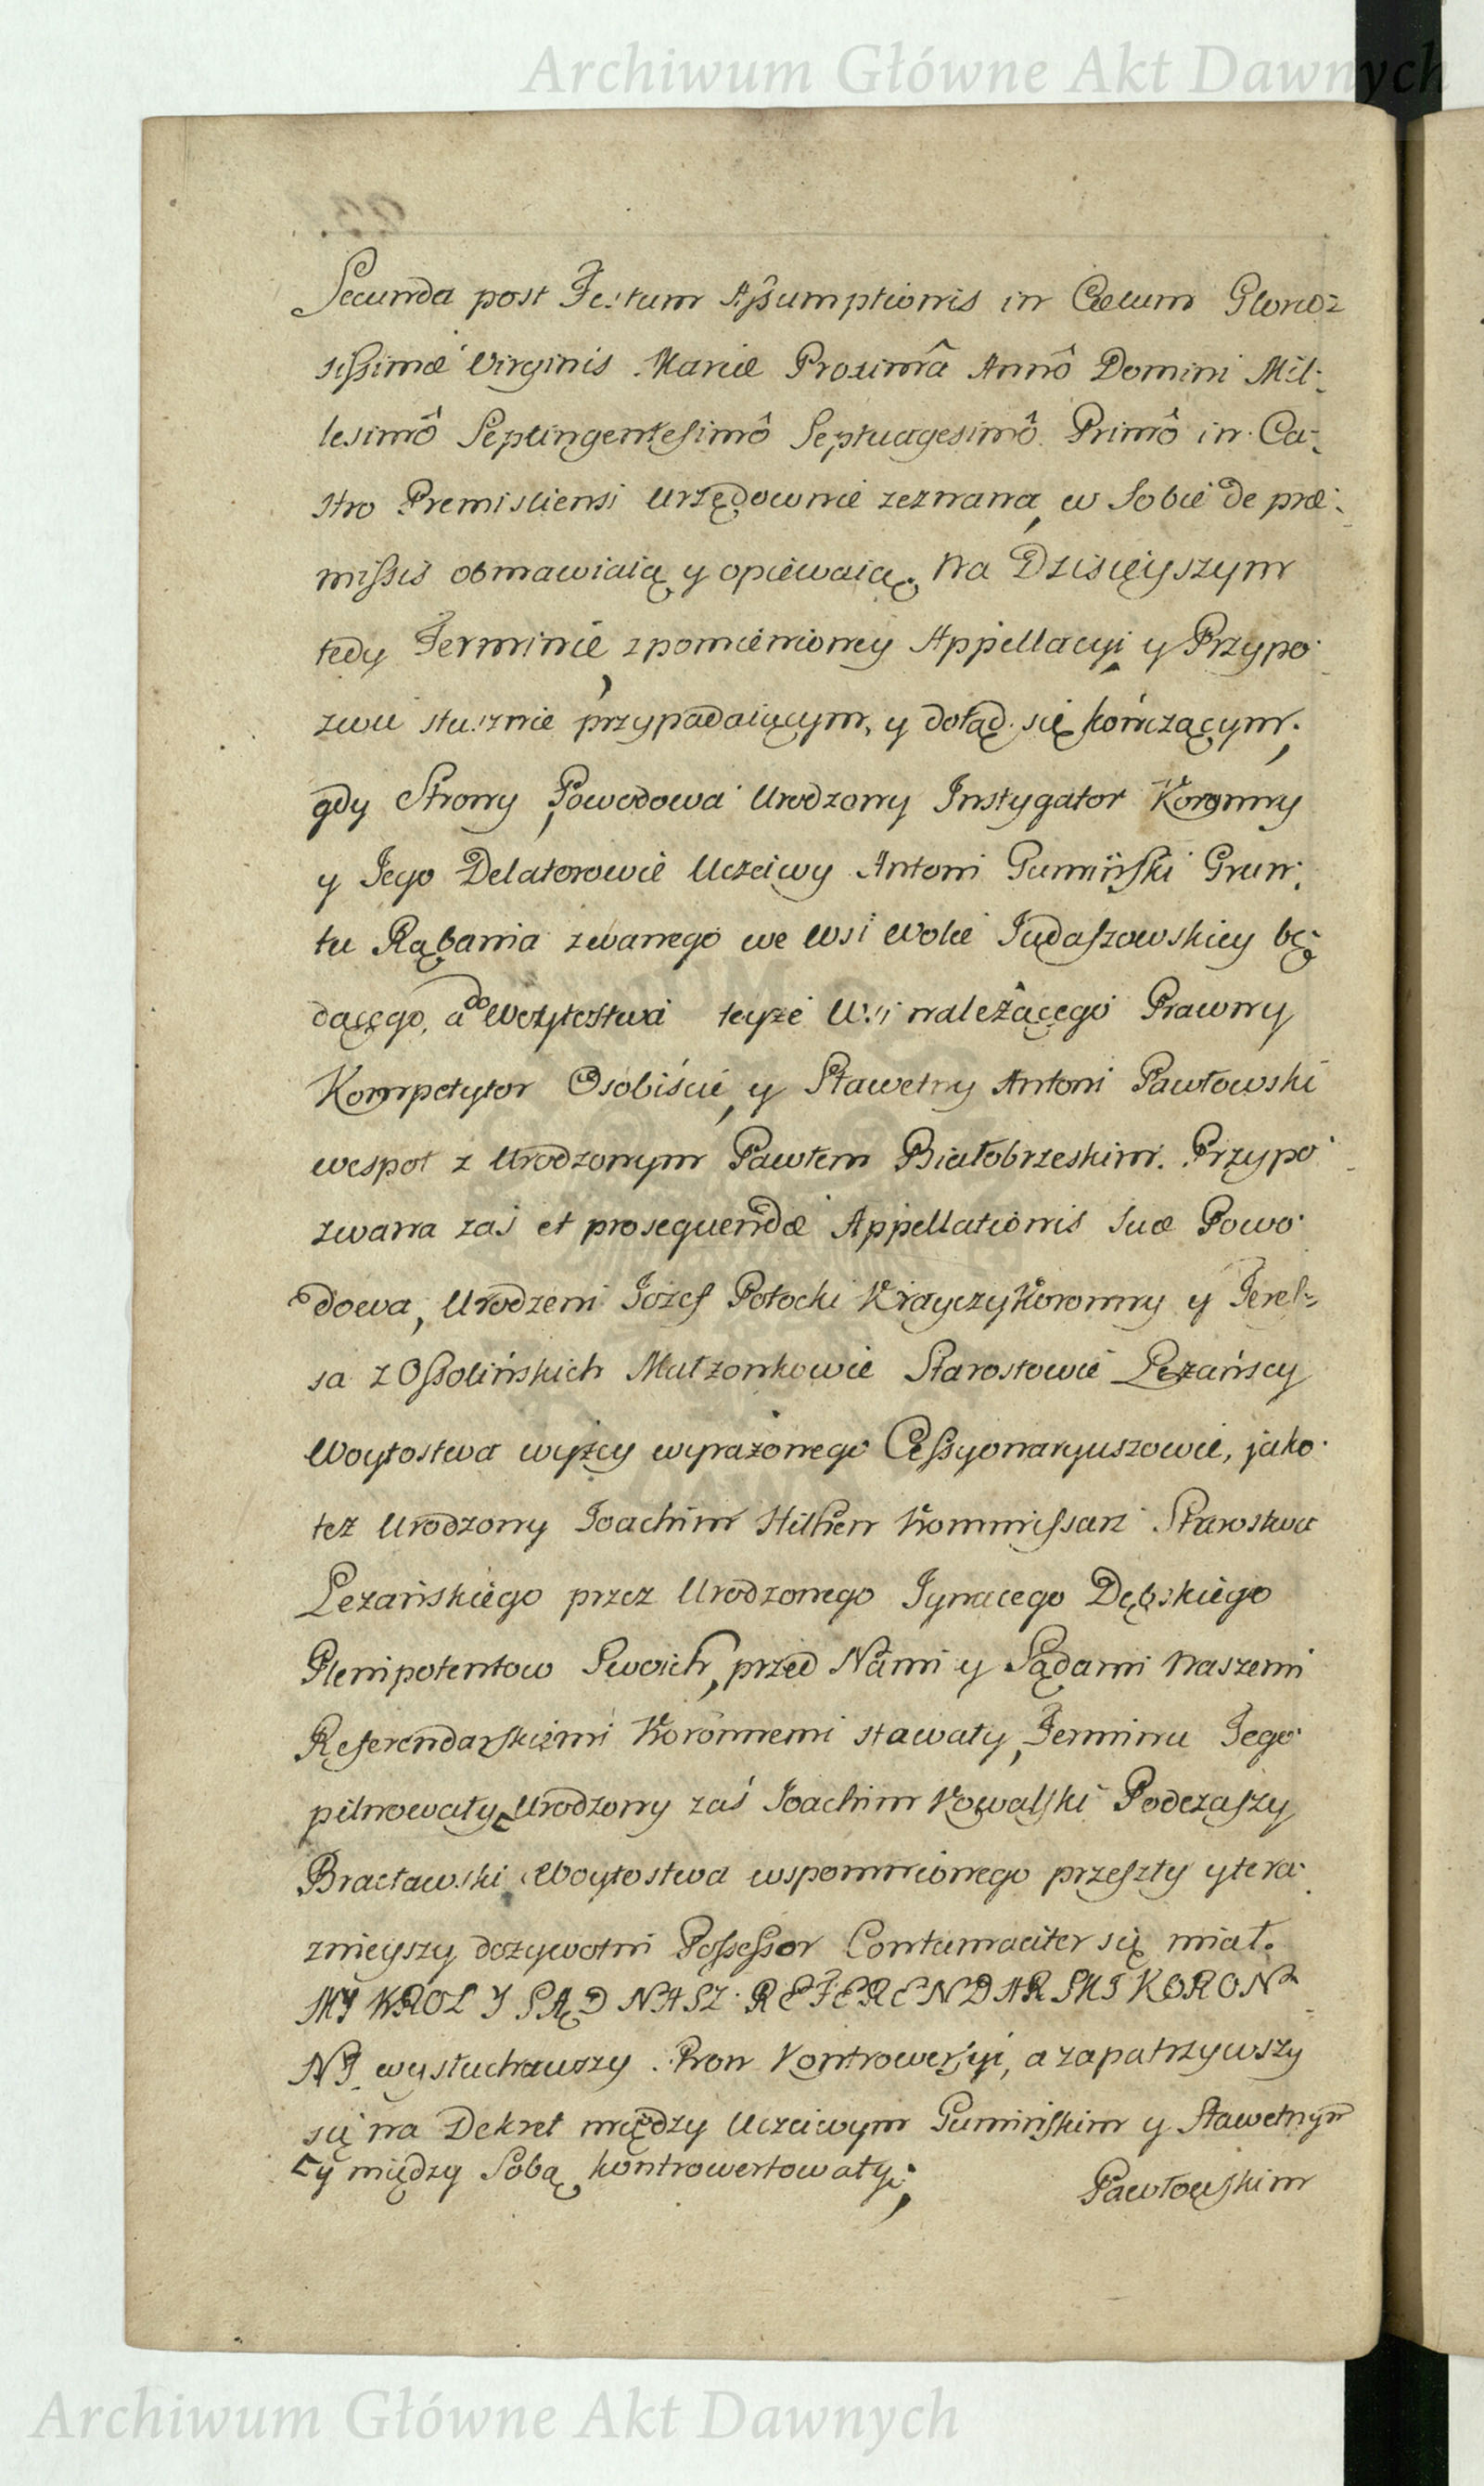 Archiwum Główne Akt Dawnych
Secunda post Festum Assumptionis in Cælum Glorio-
sissimæ Virginis Mariæ Proximâ Annô Domini Mil-
lesimô Septingentesimô Septuagesimô Primô in Ca-
stro Premisliensi urzędownie zeznana, w Sobie de præ-
missis obmawiaią y opiewaią. Na Dzisieyszym
tedy Terminie, z pomienioney Appellacyi y Przypo-
zwu słusznie przypadaiącym, y dotąd się kończącym,
gdy Strony, Powodowa Urodzony Instygator Koronny
y Jego Delatorowie Uczciwy Antoni Gumiński Grun-
tu Rąbania zwanego we Wsi Wolie Judaszowskiey bę-
dącego, a do Woytostwa teyże Wsi należącego Prawny
Kompetytor Osobiście, y Sławetny Antoni Pawłowski
wespoł z Urodzonym Pawłem Białobrzeskim. Przypo-
zwana zaś et prosequendæ Appellationis suæ Powo-
dowa, Urodzeni Jozef Potocki Krayczy Koronny y Teres-
sa z Ossolińskich Małzonkowie Starostowie Leżańscy
Woytostwa wyżey wyrażonego Cessyonaryuszowie, jako
też Urodzony Joachim Hilhen Kommissarz Starostwa
Leżańskiego przez Urodzonego Ignacego Dębskiego
Plenipotentow Swoich, przed Nami y Sądami Naszemi
Referendarskiemi Koronnemi stawały, Terminu Tego
pilnowały, Urodzony zaś Joachim Kowalski Podczaszy
Bracławski Woytostwa wspomnionego przeszły y tera-
znieyszy dożywotni Possessor Contumaciter się miał.
MY KROL Y SĄD NASZ REFERENDARSKI KORON-
NY wysłuchawszy Stron Kontrowersyi, a zapatrzywszy
się na Dekret między Uczciwym Gumińskim y Sławetnym
y między Sobą kontrowertowały;
Pawłowskim
Archiwum Główne Akt Dawnych